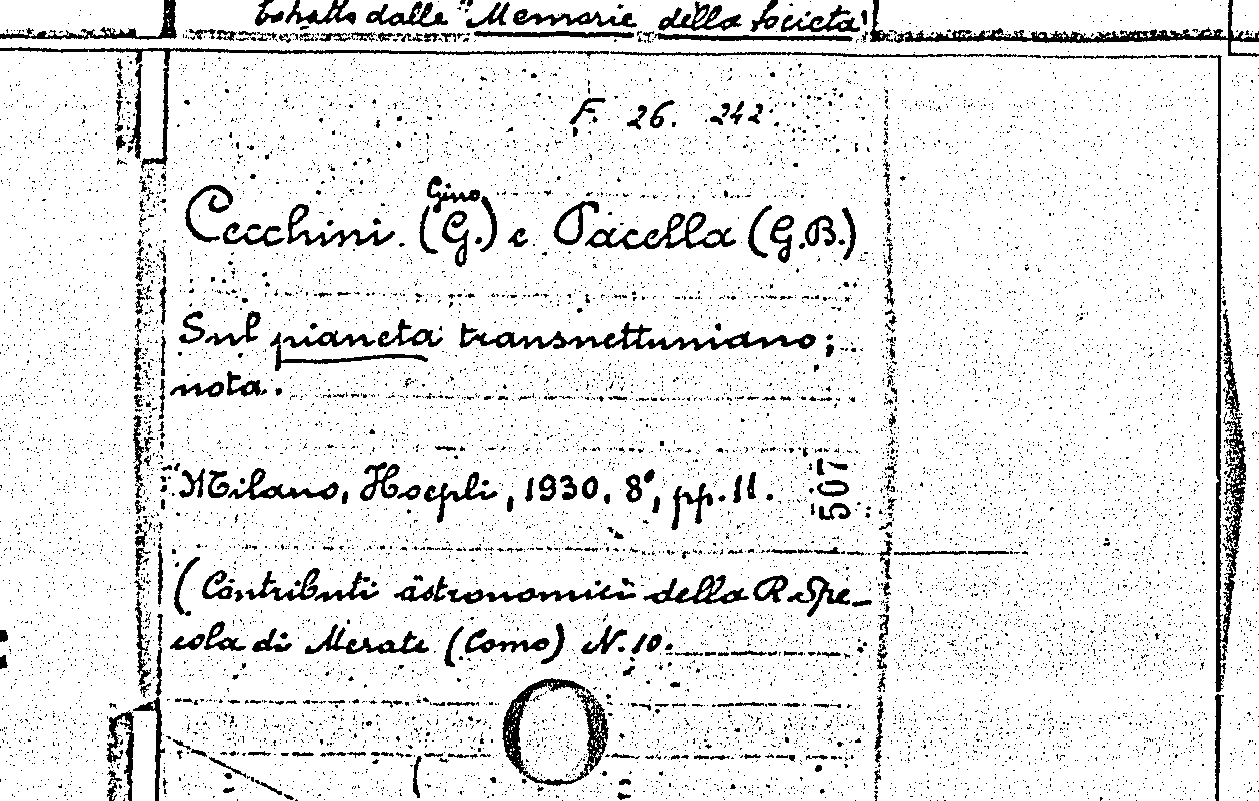 Estratto dalle "Memorie della Società"
F. 26. 242.
Gino
Cecchini (G.) e Pacella (G.B.)
Sul pianeta transnettuniano;
nota.
Milano, Hoepli, 1930, 8°, pp. 11.
507
(Contributi astronomici della R. Spe-
cola di Merate (Como) N. 10.